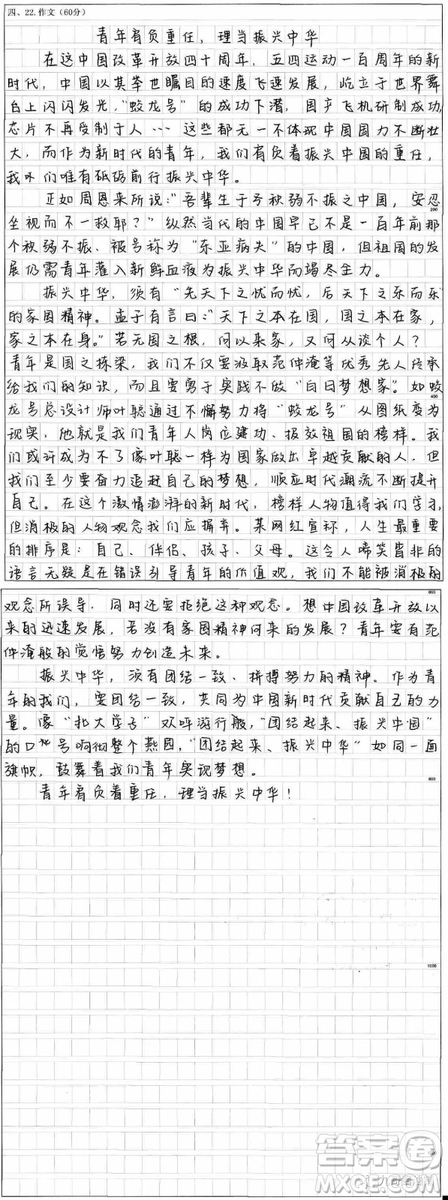 四、22.作文（60分）
青年肩负重任，理当振兴中华
在这中国改革开放四十周年，五四运动一百周年的新
时代，中国以其举世瞩目的速度飞速发展，屹立于世界舞
台上闪闪发光，“蛟龙号”的成功下潜，国产飞机研制成功
芯片不再受制于人……这些都无一不体现中国国力不断壮
大，而作为新时代的青年，我们肩负着振兴中国的重任，
我们唯有砥砺前行振兴中华。
正如周恩来所说：“吾辈生于兮秋弱不振之中国，安忍
坐视而不一救耶？”纵然当代的中国早已不是一百年前那
个秋弱不振、被号称为“东亚病夫”的中国，但祖国的发
展仍需青年落入新鲜血液为振兴中华而竭尽全力。
振兴中华，须有“先天下之忧而忧，后天下之乐而乐”
的家国精神。孟子有言曰：“天下之本在国，国之本在家，
家之本在身。”若无国之根，何以来家，又何从谈个人？
青年是国之栋梁，我们不仅要汲取范仲淹等优秀先人传承
给我们的知识，而且要勇于实践不做“白日梦想家”。如蛟
龙号总设计师叶聪通过不懈努力将“蛟龙号”从图纸变为
现实，他就是我们青年人岗位建功、报效祖国的榜样。我
们或许成为不了像叶聪一样为国家做出卓越贡献的人，但
我们至少要奋力追赶自己的梦想，顺应时代潮流不断提升
自己。在这个激情澎湃的新时代，榜样人物值得我们学习，
但消极的人物观念我们应摒弃。某网红宣称，人生最重要
的排序是：自己、伴侣、孩子、父母。这令人啼笑皆非的
语言无疑是在错误引导青年的价值观，我们不能被消极的
观念所误导，同时还要拒绝这种观念。想中国改革开放以
来的迅速发展，若没有家国精神何来的发展？青年要有范
仲淹般的觉悟努力创造未来。
振兴中华，须有团结一致、拼搏努力的精神。作为青
年的我们，要团结一致，共同为中国新时代贡献自己的力
量。像“北大学子”欢呼游行般，“团结起来、振兴中国”
的口号响彻整个燕园，“团结起来、振兴中华”如同一面
旗帜，鼓舞着我们青年奥说梦想。
青年肩负着重任，理当振兴中华！
答案圈
MXQE.COM